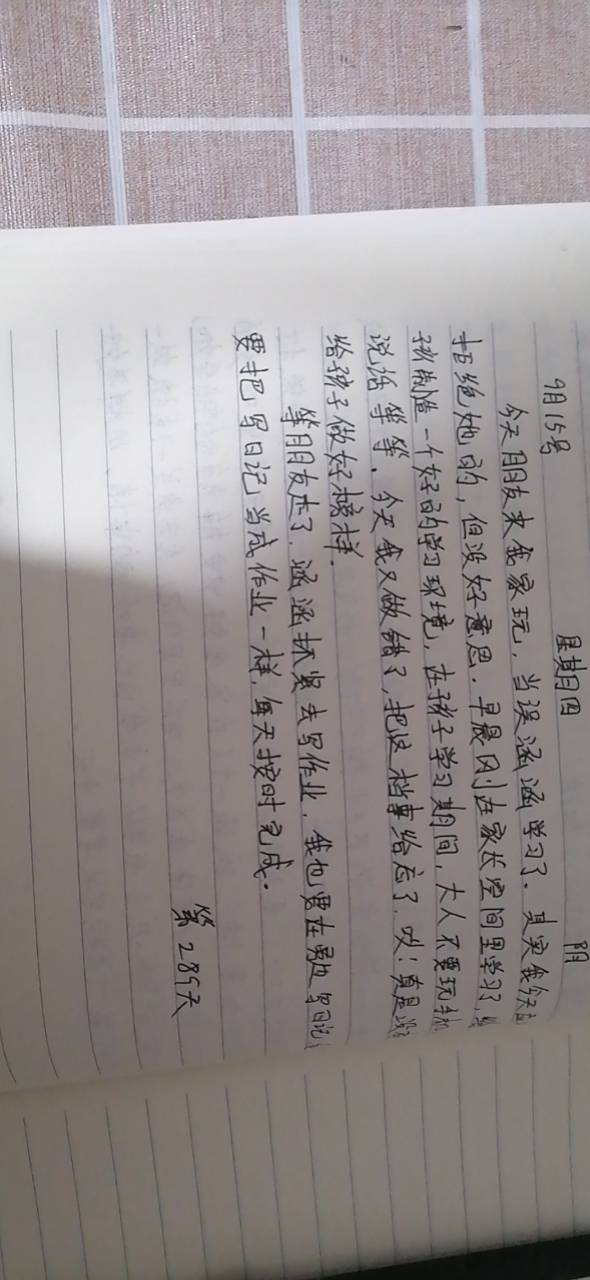 9月15号 星期四 阴
今天朋友来我家玩,当误涵涵学习了。其实我今天
拒绝她的,但没好意思。早晨刚在家长空间里学习了,给
孩制造一个好的学习环境,在孩子学习期间,大人不要玩手机
说话等等。今天我又做错了,把这档事给忘了,哎!真是没
给孩子做好榜样。
等朋友走了,涵涵抓紧去写作业,我也要在旁边写日记
要把写日记当成作业一样,每天按时完成。
第289天